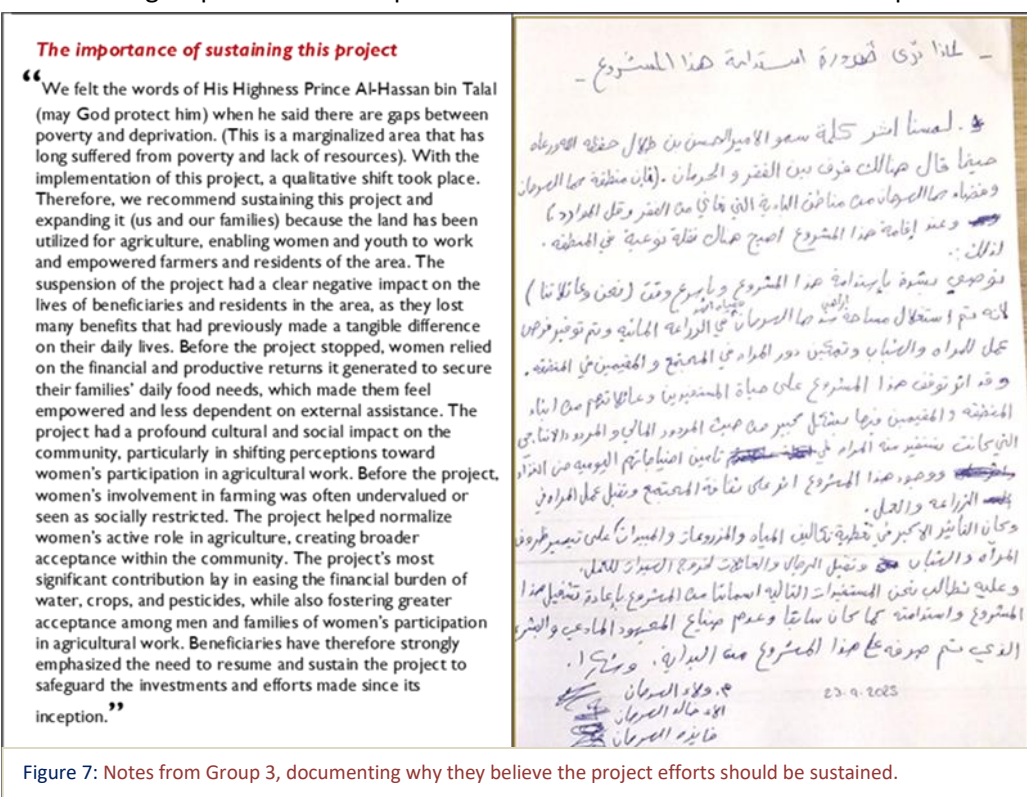 The importance of sustaining this project
“We felt the words of His Highness Prince Al-Hassan bin Talal
(may God protect him) when he said there are gaps between
poverty and deprivation. (This is a marginalized area that has
long suffered from poverty and lack of resources). With the
implementation of this project, a qualitative shift took place.
Therefore, we recommend sustaining this project and
expanding it (us and our families) because the land has been
utilized for agriculture, enabling women and youth to work
and empowered farmers and residents of the area. The
suspension of the project had a clear negative impact on the
lives of beneficiaries and residents in the area, as they lost
many benefits that had previously made a tangible difference
on their daily lives. Before the project stopped, women relied
on the financial and productive returns it generated to secure
their families’ daily food needs, which made them feel
empowered and less dependent on external assistance. The
project had a profound cultural and social impact on the
community, particularly in shifting perceptions toward
women’s participation in agricultural work. Before the project,
women’s involvement in farming was often undervalued or
seen as socially restricted. The project helped normalize
women’s active role in agriculture, creating broader
acceptance within the community. The project’s most
significant contribution lay in easing the financial burden of
water, crops, and pesticides, while also fostering greater
acceptance among men and families of women’s participation
in agricultural work. Beneficiaries have therefore strongly
emphasized the need to resume and sustain the project to
safeguard the investments and efforts made since its
inception.”
- لماذا نرى ضرورة استدامة هذا المشروع -
لمسنا اثر كلمة سمو الامير الحسن بن طلال حفظه الله ورعاه
حينما قال هنالك فرق بين الفقر و الحرمان . (فإن منطقة
من مناطق البادية التي تعاني من الفقر وقل الموارد)
وعند إقامة هذا المشروع اصبح هناك نقلة نوعية في المنطقة .
لذلك :.
نوصي بشدة بإستدامة هذا المشروع وبأسرع وقت (نحن وعائلاتنا)
لأنه تم إستغلال مساحة في الزراعة المائية وتم توفير فرص
عمل للمراه والشباب وتمكين دور المراه في المجتمع و المقيمين في المنطقه .
و قد اثر توقف هذا المشروع على حياة المستفيدين وعائلاتهم من ابناء
المنطقه و المقيمين فيها بشكل كبير من حيث المردود المالي و المردود الانتاجي
التي كانت تستفيد منه المراه في تامين احتياجاتهم اليوميه من الغذاء
ووجود هذا المشروع اثر على ثقافة المجتمع وتقبل عمل المراه في
الزراعه والعمل .
وكان التأثير الاكبر في تغطية تكاليف المياه والمزروعات والمبيدات على تيسير ظروف
المرأه والشباب وتقبل الرجال والعائلات لخروج السيدات للعمل .
وعليه نطالب نحن المستفيدات التاليه اسمائنا من المشروع بإعادة تشغيل هذا
المشروع واستدامته كما كان سابقا وعدم ضياع المجهود المادي والبشري
الذي تم صرفه على هذا المشروع من البداية . وشكرا .
م. ولاء السرحان
23.9.2025
الاء خالد السرحان
فايزه السرحان
Figure 7: Notes from Group 3, documenting why they believe the project efforts should be sustained.